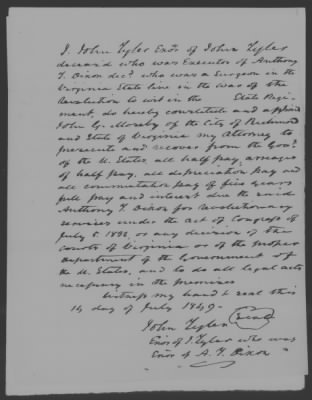 I. John Tyler Exor of John Tyler
deceas'd who was Executor of Anthony
T. Dixon decd. who was a Surgeon in the
Virginia State line in the war of the
Revolution to wit in the State Regi-
ment, do hereby constitute and appoint
John G. Mosby of the City of Richmond
and State of Virginia my Attorney to
prosecute and recover from the Govt.
of the U. States, all half pay, arrears
of half pay, all depreciation pay and
all commutation pay of five years
full pay and interest due the said
Anthony T. Dixon for Revolutionary
services under the Act of Congress of
July 5 1832, or any decision of the
courts of Virginia or of the proper
Department of the Government of
the U. States, and to do all legal acts
necessary in the premises
Witness my hand & seal this
14 day of July 1849.
John Tyler Seal
Exor of J. Tyler who was
Exor of A. T. Dixon